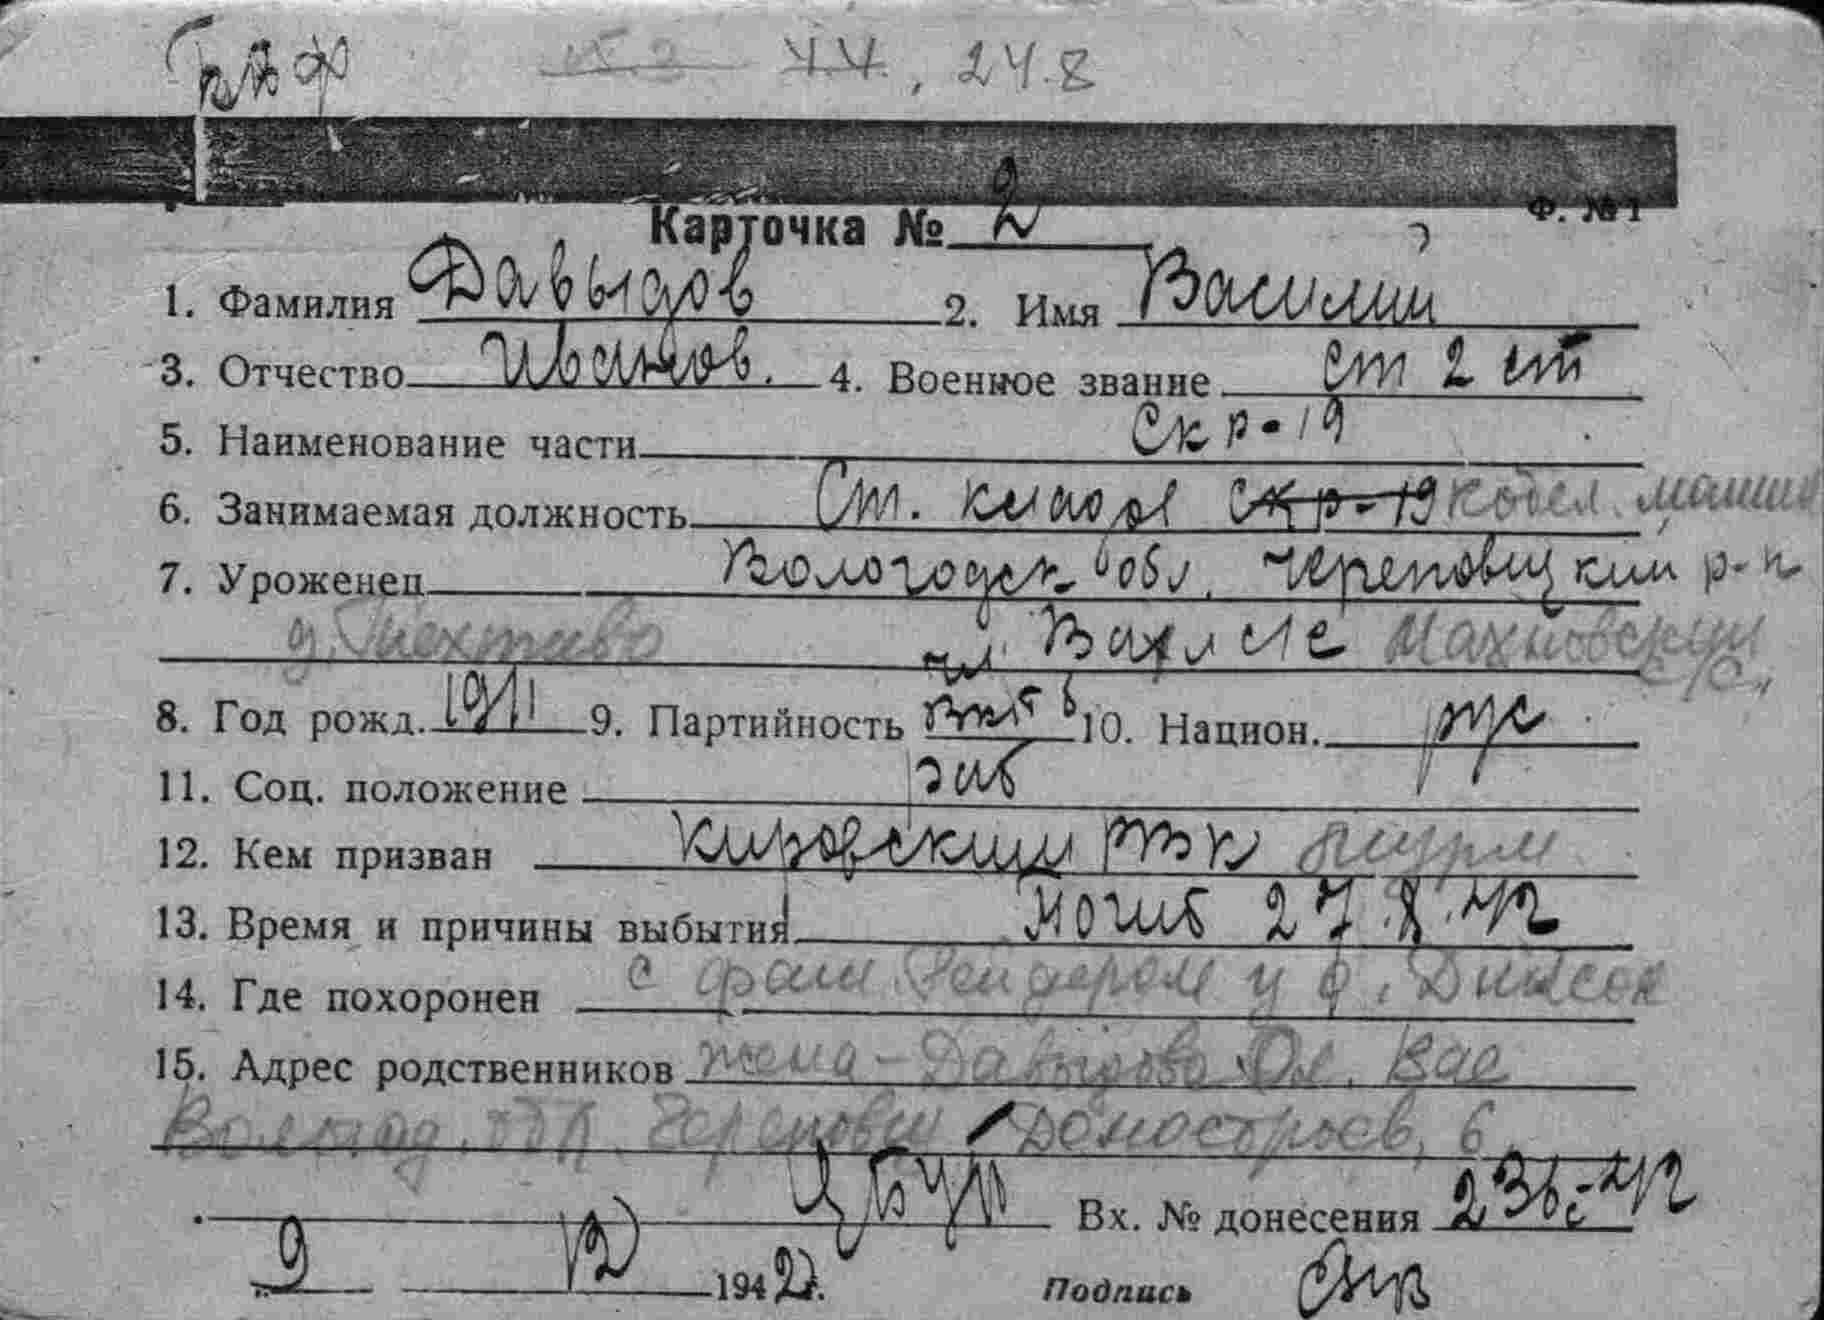 24.8
Ф. № 1
Карточка № 2
1. Фамилия Давыдов 2. Имя Василий
3. Отчество Иванов. 4. Военное звание ст 2 ст
5. Наименование части Скр-19
6. Занимаемая должность Ст. кладов скр-19 котел. машин
7. Уроженец Вологодск обл. Череповецкий р-н
д. Махновский с/с.,
8. Год рожд. 1911 9. Партийность чл. ВКПб 10. Национ. рус
11. Соц. положение раб
12. Кем призван Кировский РВК
13. Время и причины выбытия Погиб 27.8.42
14. Где похоронен с фаш. Рейдером у о. Диксон
15. Адрес родственников жена - Давыдова Ол. Вас
Вологод. обл. Череповец Домостроев, 6
Вх. № донесения 236с-42
9 12 1942 г. Подпись